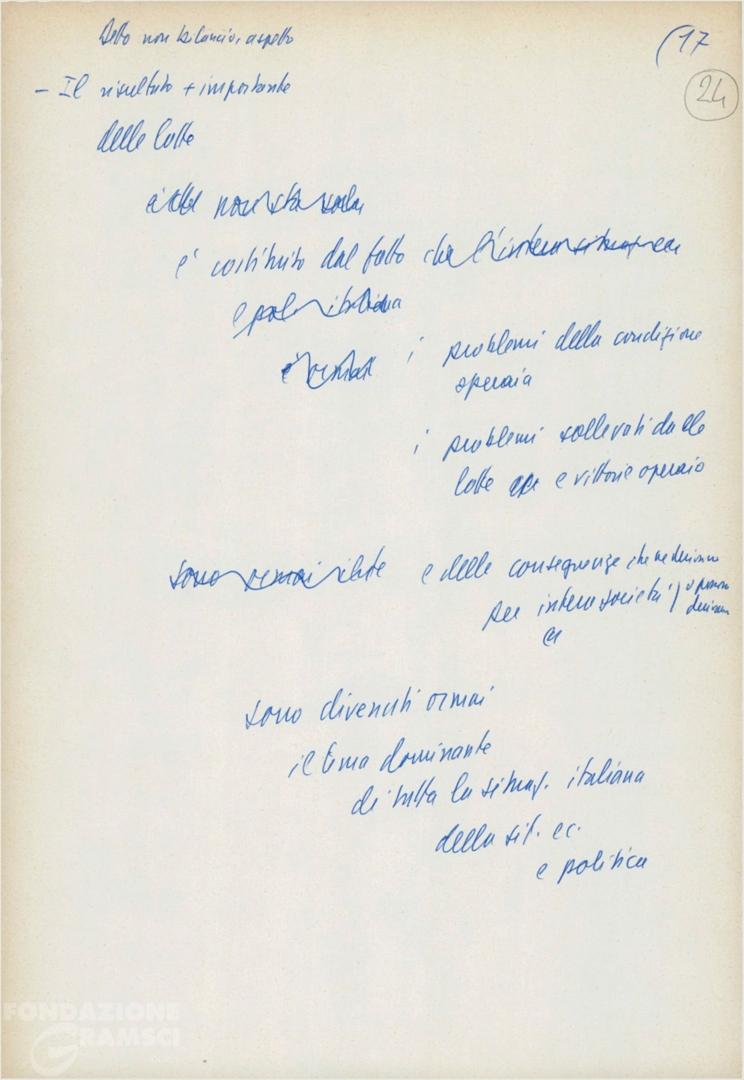 Detto non bilancio, aspetto
(17
24
- Il risultato + importante
delle lotte
è che non sta solo
e' costituito dal fatto che l'intera situaz. ec
e pol. italiana
è ormai i problemi della condizione
operaia
i problemi sollevati dalle
lotte ope e vittorie operaie
sono ormai e delle conseguenze che ne derivano
per intera società
sono divenuti ormai
il tema dominante
di tutta la situaz. italiana
della sit. ec.
e politica
FONDAZIONE
GRAMSCI